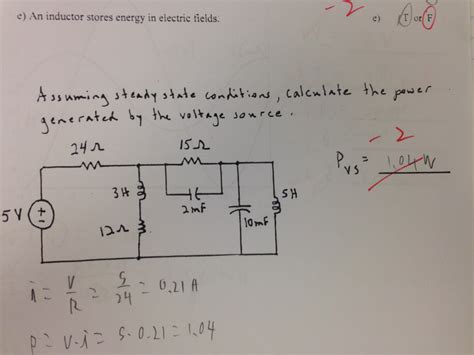 -2
e) An inductor stores energy in electric fields.
e) T or F
Assuming steady state conditions, calculate the power
generated by the voltage source.
-2
P_vs = 1.04 W
24Ω
15Ω
3H
2mF
5H
5V
+
-
12Ω
10mF
i = V/R = 5/24 = 0.21 A
P = V·i = 5·0.21 = 1.04